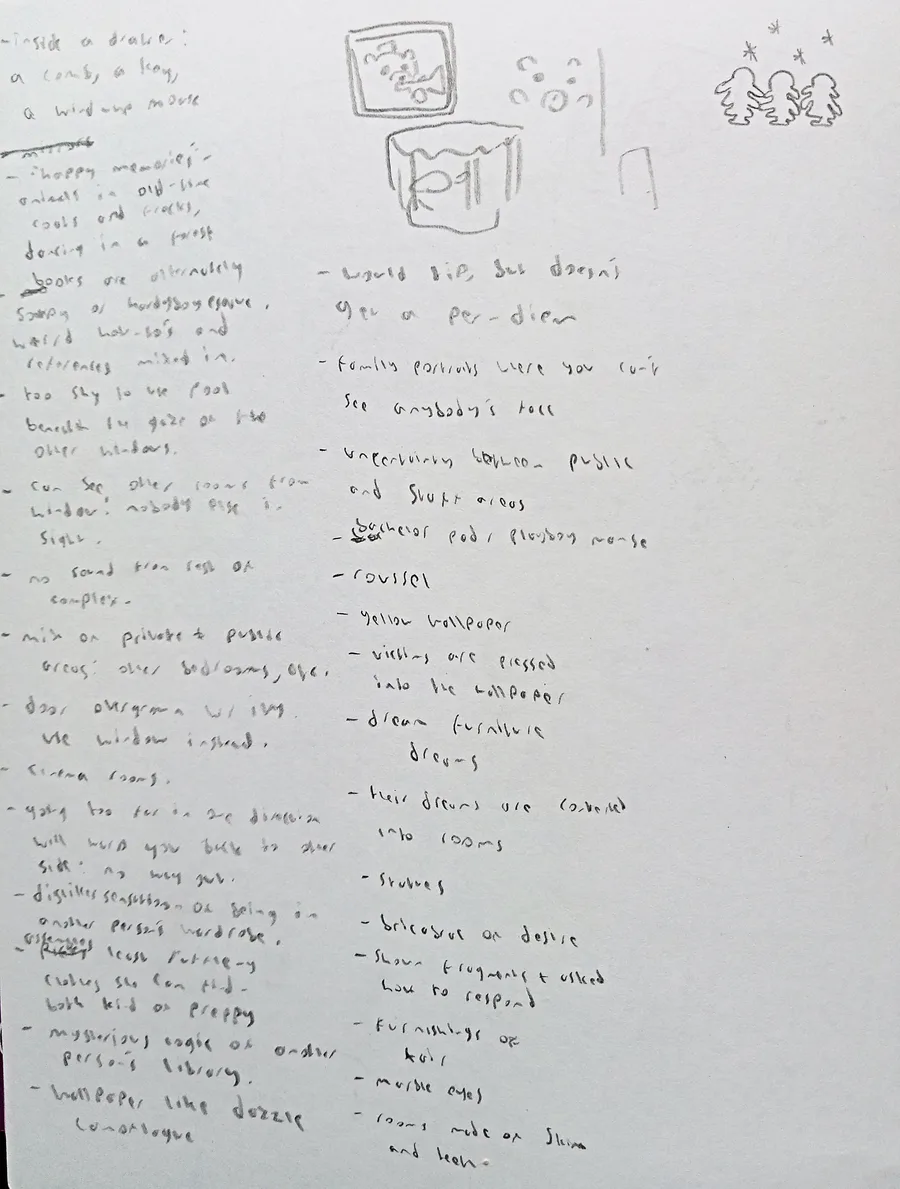 - inside a drawer:
a comb, a key,
a wind-up mouse
- "happy memories" -
animals in old-time
coats and frocks,
dancing in a forest
- books are alternately
soapy or hardyboyesque.
weird how-to's and
references mixed in.
- too shy to use pool
beneath the gaze of the
other windows.
- can see other rooms from
window: nobody else in
sight.
- no sound from rest of
complex.
- mix of private + public
areas: other bedrooms, etc.
- door overgrown w/ ivy.
use window instead.
- cinema rooms.
- going too far in one direction
will warp you back to other
side: no way out.
- dislikes sensation of being in
another person's wardrobe.
assembles least
clothes she can find -
both kind of preppy
- mysterious logic of another
person's library.
- wallpaper like dazzle
camoflague
- would tip, but doesn't
get a per-diem
- family portraits where you can't
see anybody's face
- uncertainty between public
and staff areas
- bachelor pad / playboy manse
- roussel
- yellow wallpaper
- victims are pressed
into the wallpaper
- dream furniture
dreams
- their dreams are converted
into rooms
- statues
- bricabrac of desire
- shown fragments + asked
how to respond
- furnishings of
hair
- marble eyes
- rooms made of skin
and teeth.